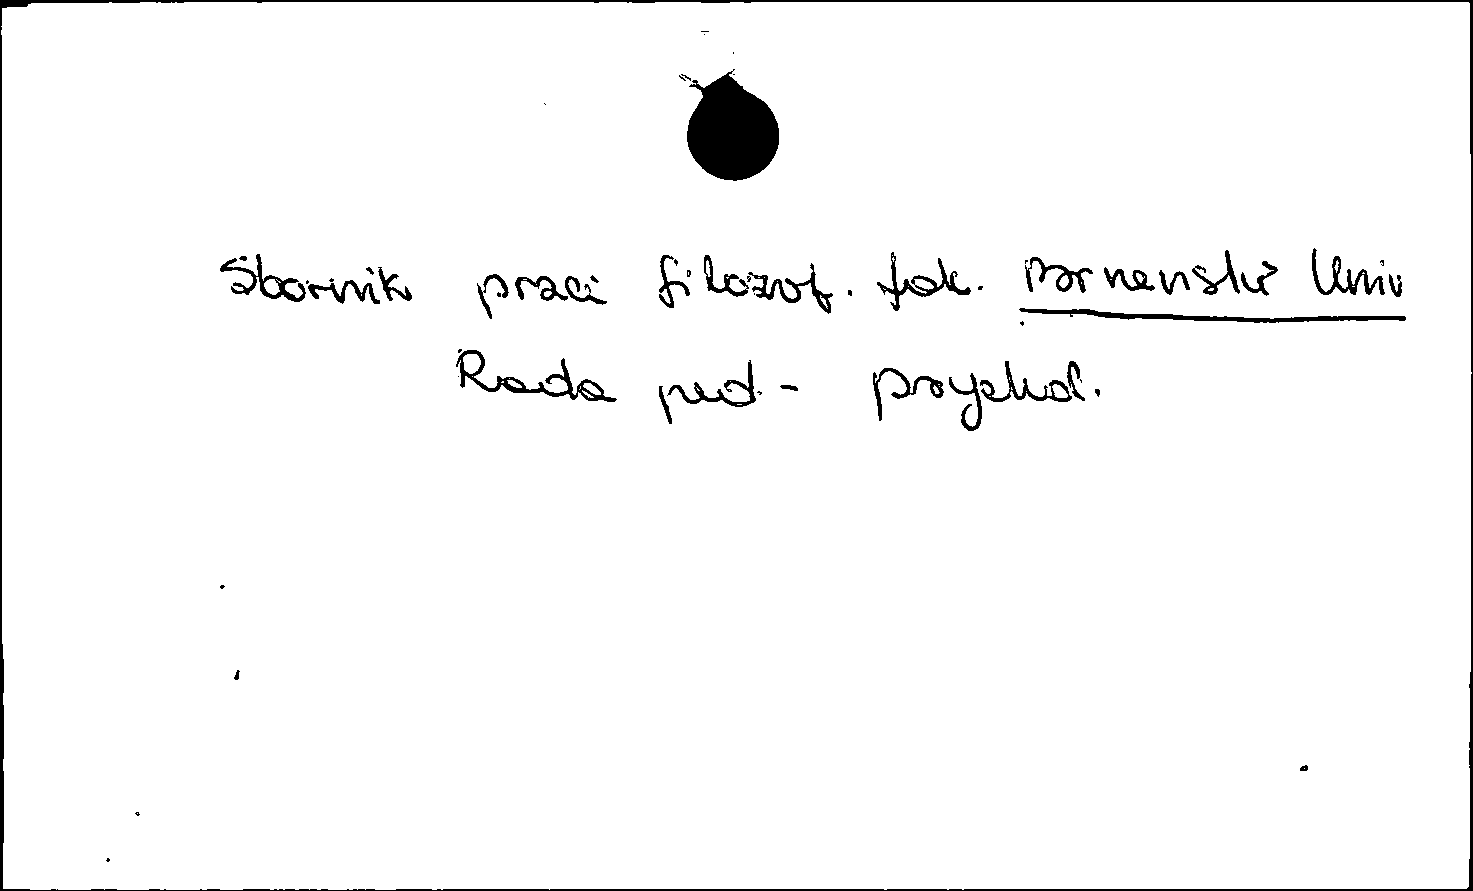 Sbornik praci filozof. fak. Brnenské Univ
Rada ped - psychol.